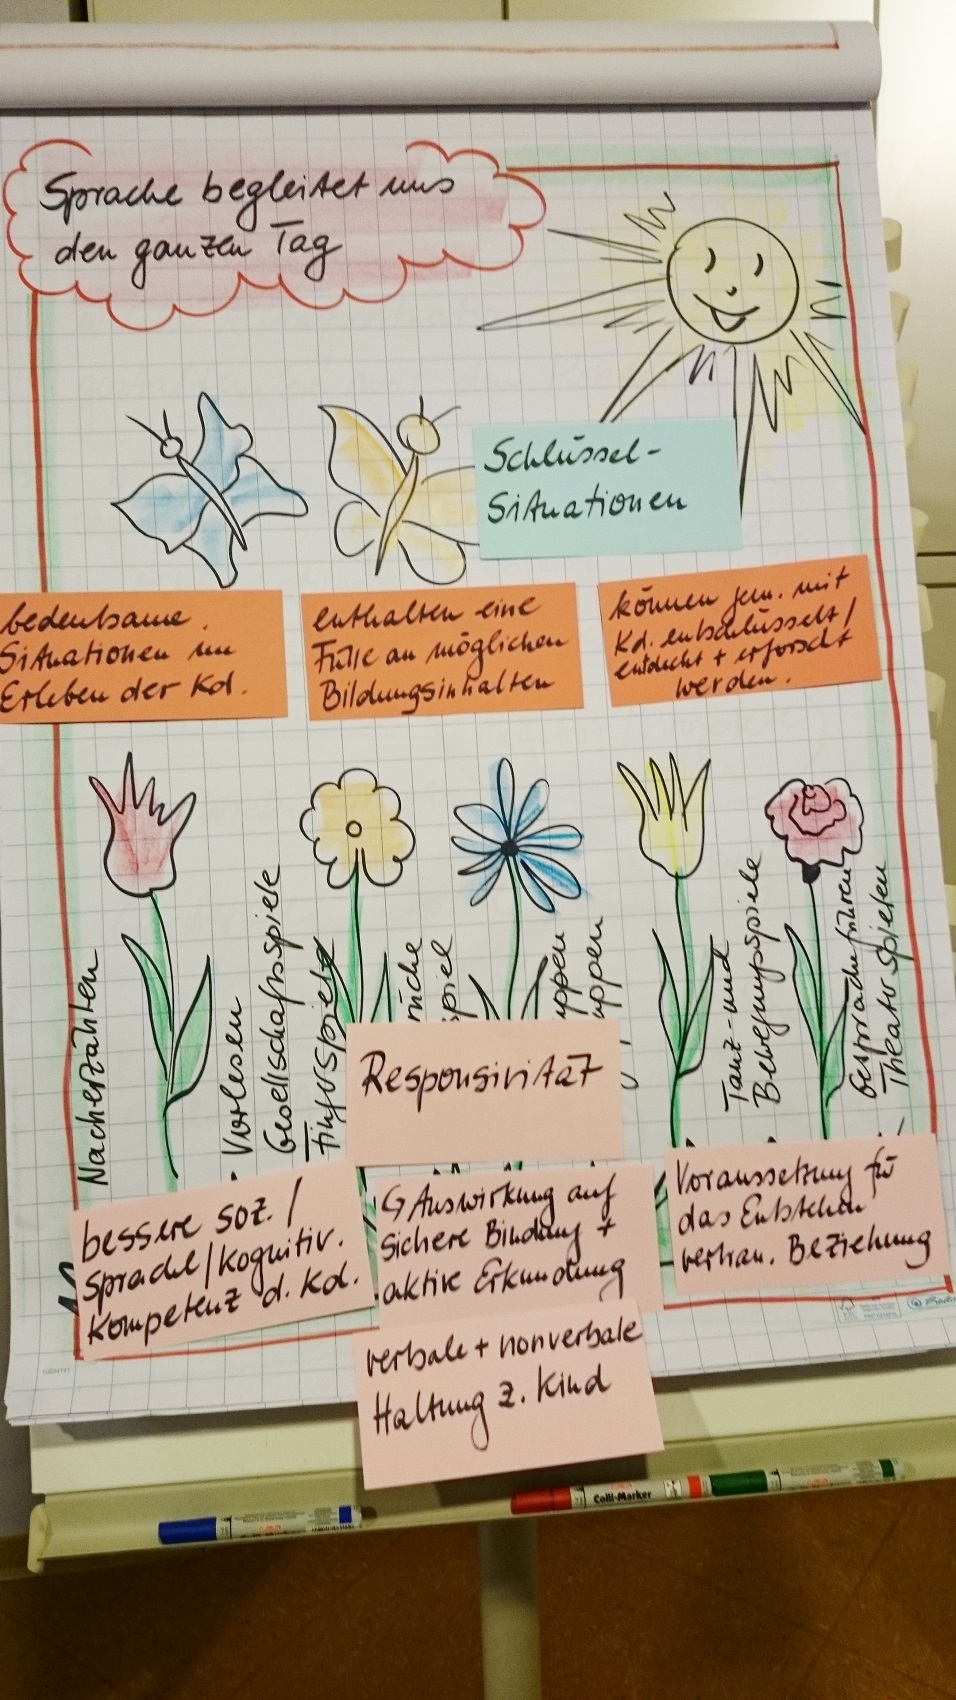 Sprache begleitet uns
den ganzen Tag
Schlüssel-
Situationen
bedeutsame
Situationen im
Erleben der Kd.
enthalten eine
Fülle an möglichen
Bildungsinhalten
können gem. mit
Kd. entschlüsselt/
entdeckt + erforscht
werden.
Nacherzählen
Vorlesen
Gesellschaftsspiele
Fingerspiele
Tanz- und
Bewegungsspiele
Gespräche führen
Theater spielen
Responsivität
bessere soz. /
Sprachl/kognitiv.
Kompetenz d. Kd.
↳ Auswirkung auf
sichere Bindung +
aktive Erkundung
Voraussetzung für
das Entstehen
vertrau. Beziehung
verbale + nonverbale
Haltung z. Kind
Colli-Marker